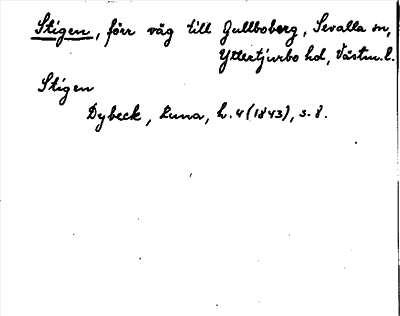 Stigen, förr väg till Gullboberg, Sevalla sn,
Yttertjurbo hd, Västm. l.
Stigen
Dybeck, Runa, h. 4 (1843), s. 8.